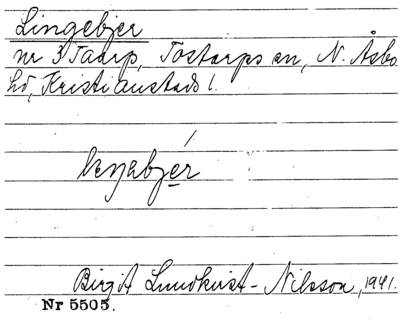 Lingebjer
nr 3 Taarp, Tostarps sn, N. Åsbo
hd, Kristianstads l.
Birgit Lundkvist-Nilsson, 1941.
Nr 5505.